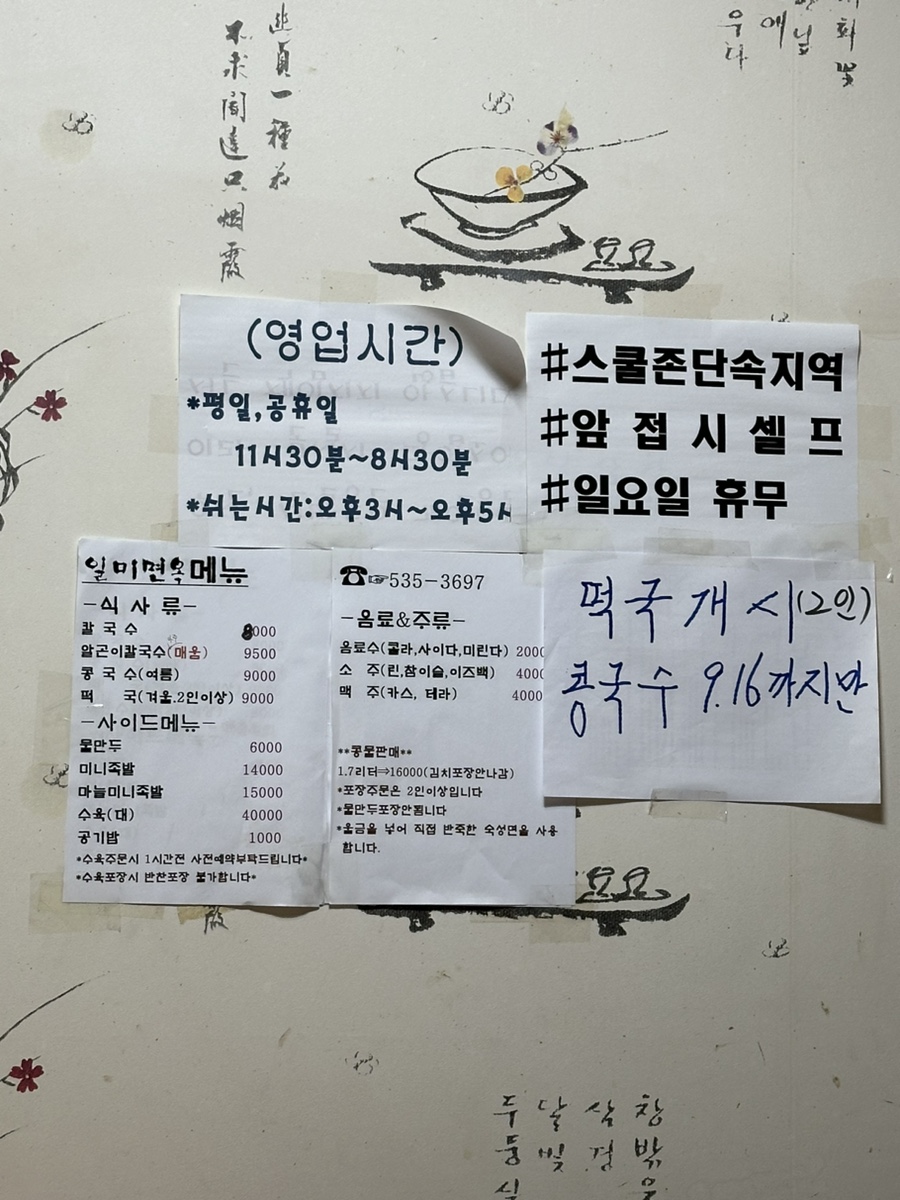 幽貞一種花
不求聞達只烟霞
우다
애
(영업시간)
*평일,공휴일
11시30분~8시30분
*쉬는시간:오후3시~오후5시
#스쿨존단속지역
#앞 접 시 셀 프
#일요일 휴무
일미면옥메뉴
-식 사 류-
칼 국 수 8000
알곤이칼국수(매움) 9500
콩 국 수(여름) 9000
떡 국(겨울.2인이상) 9000
-사이드메뉴-
물만두 6000
미니족발 14000
마늘미니족발 15000
수육(대) 40000
공기밥 1000
*수육주문시 1시간전 사전예약부탁드립니다*
*수육포장시 반찬포장 불가합니다*
☎☞535-3697
-음료&주류-
음료수(콜라,사이다,미린다) 2000
소 주(린,참이슬,이즈백) 4000
맥 주(카스, 테라) 4000
**콩물판매**
1.7리터⇒16000(김치포장안나감)
*포장주문은 2인이상입니다
*물만두포장안됩니다
*울금을 넣어 직접 반죽한 숙성면을 사용
합니다.
떡국 개시(2인)
콩국수 9.16까지만
霞
창밖은
삼경
달빛
두둥실